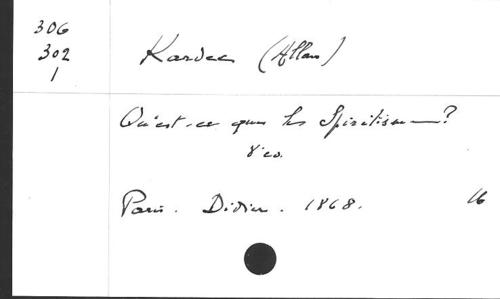 306
302
1
Kardec (Allan)
Qu'est-ce que le Spiritisme?
8º éd.
Paris. Didier. 1868.
16